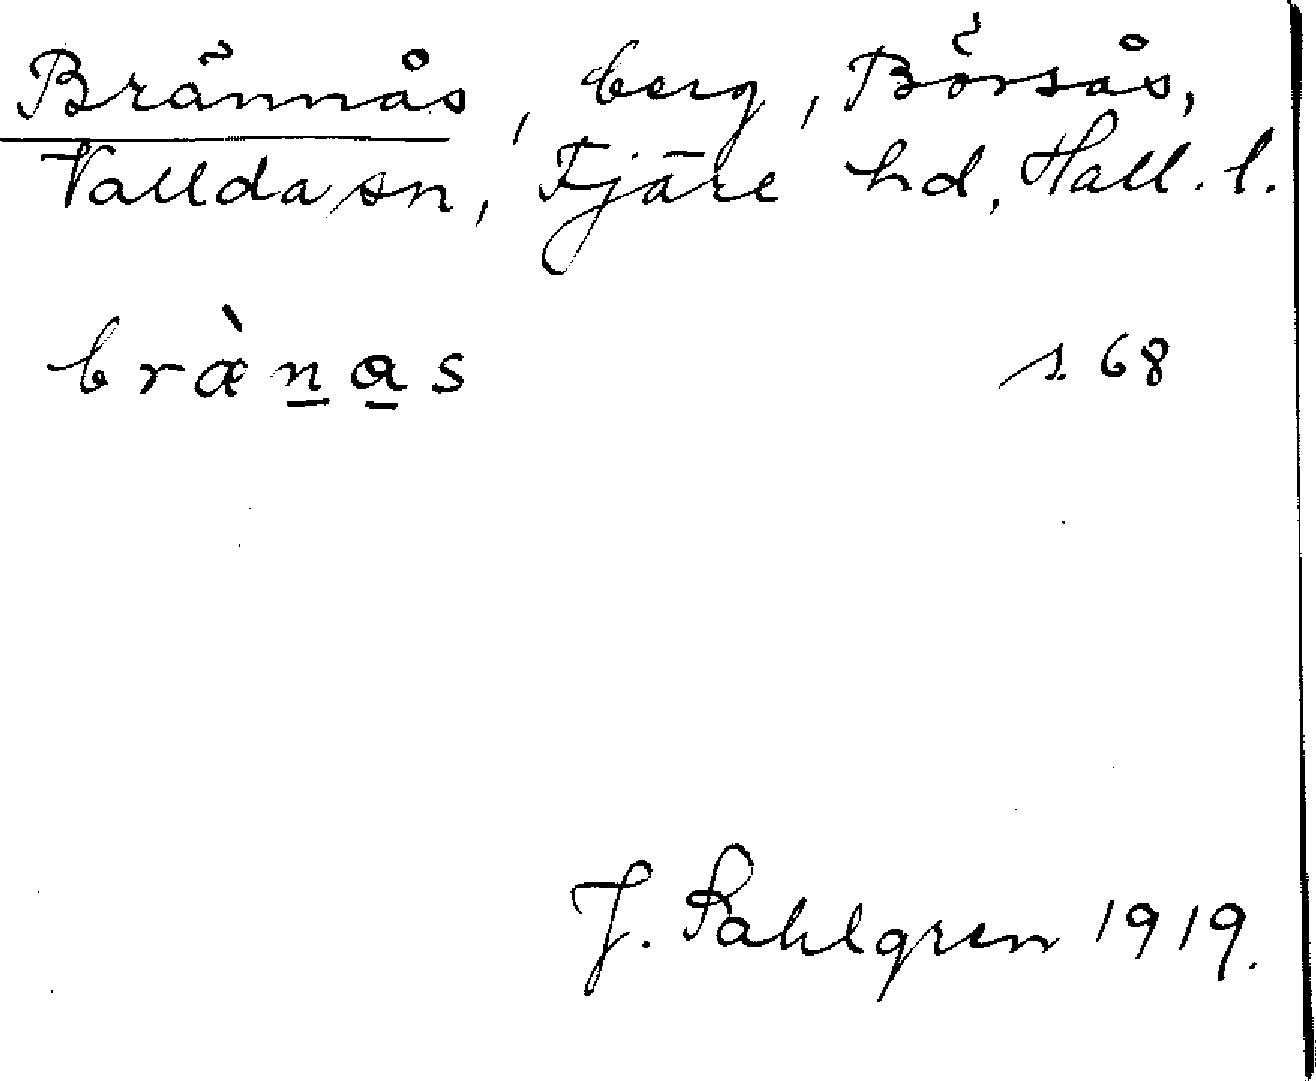 Brännås, berg, Börsås,
Vallda sn, Fjäre hd, Hall. l.
bræ̀n̠a̠s s 68
J. Sahlgren 1919.